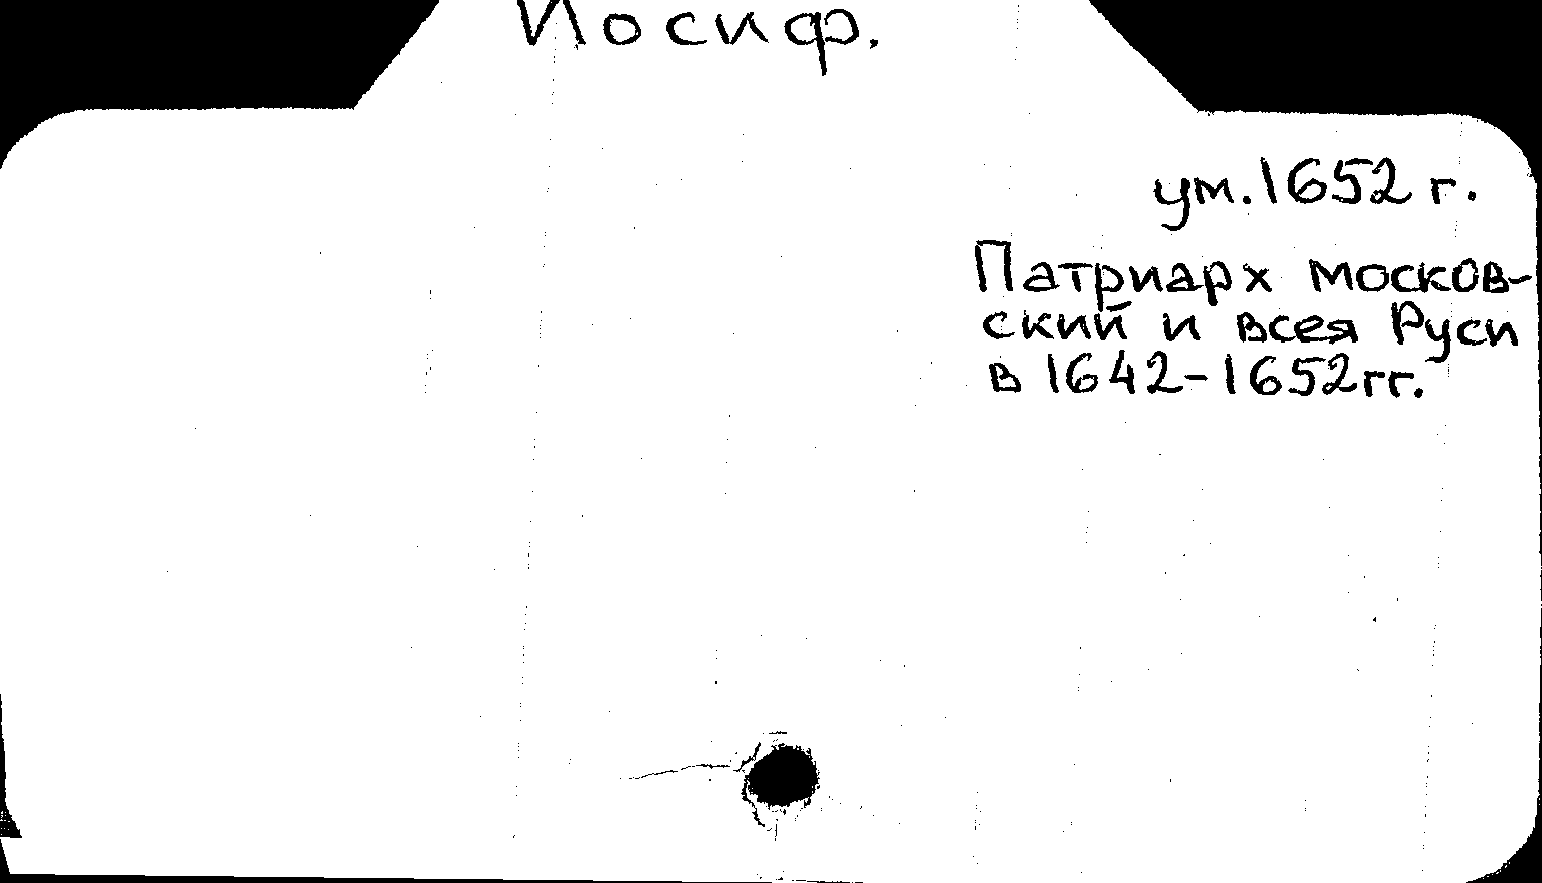 Иосиф.
ум. 1652 г.
Патриарх москов-
ский и всея Руси
в 1642-1652гг.